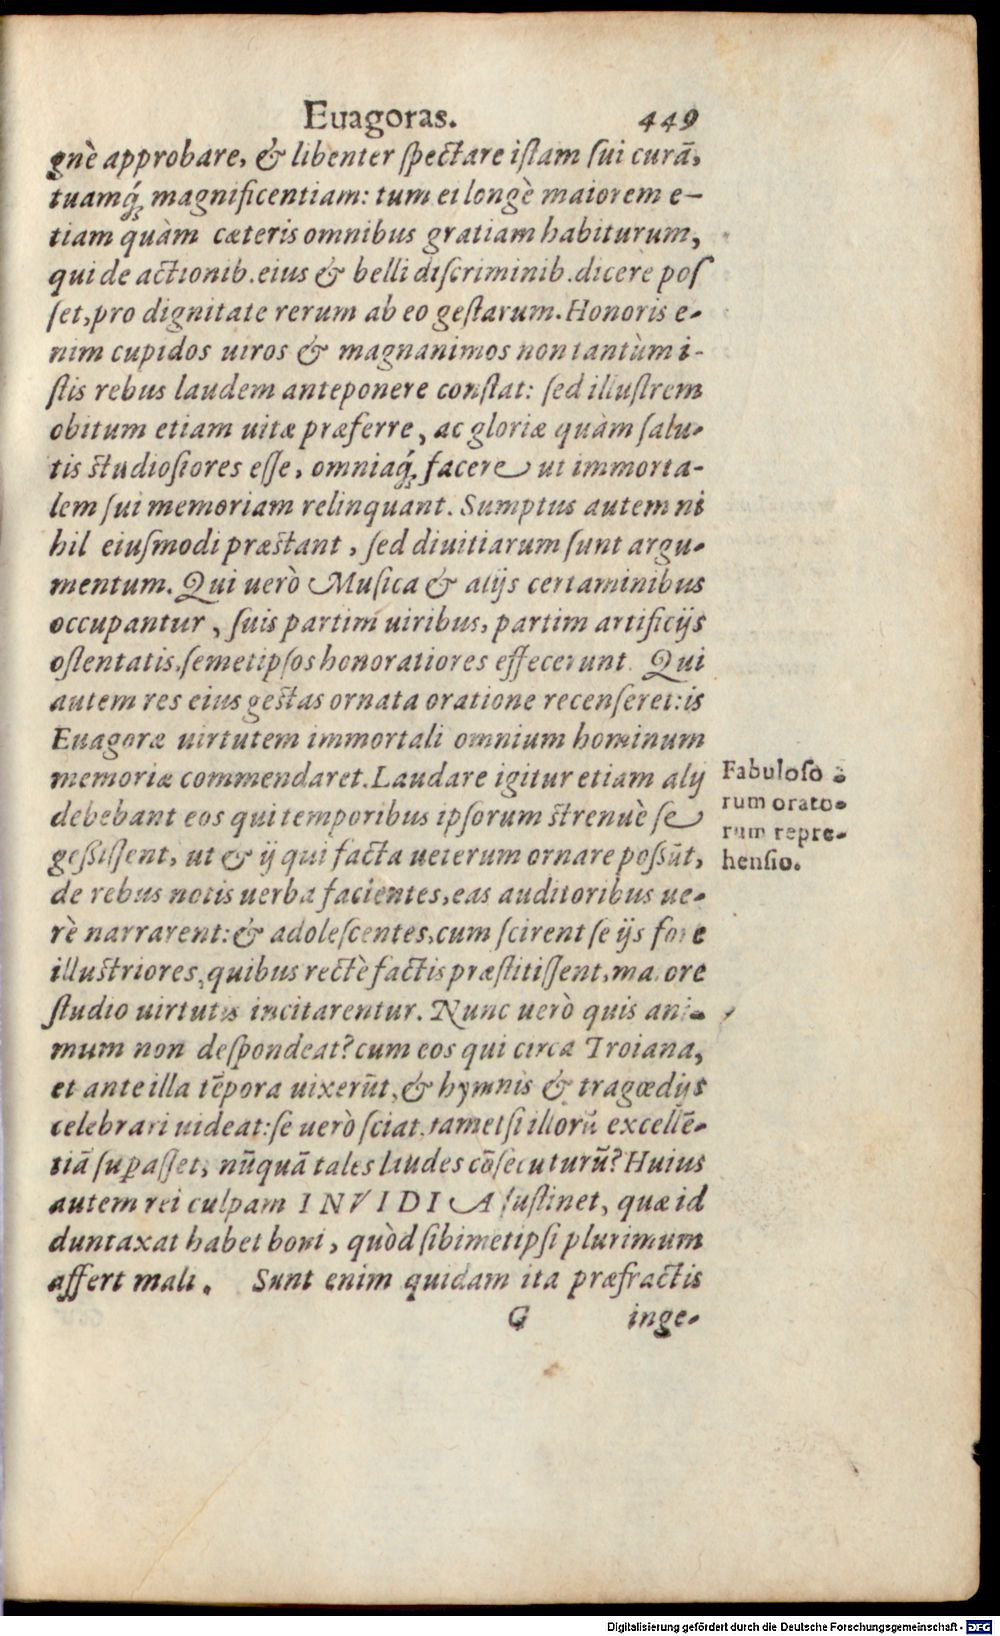 Euagoras. 449
gnè approbare, & libenter spectare istam sui curā,
tuamq́; magnificentiam: tum ei longè maiorem e-
tiam quàm cæteris omnibus gratiam habiturum,
qui de actionib. eius & belli discriminib. dicere pos
set, pro dignitate rerum ab eo gestarum. Honoris e-
nim cupidos uiros & magnanimos non tantùm i-
stis rebus laudem anteponere constat: sed illustrem
obitum etiam uitæ præferre, ac gloriæ quàm salu-
tis studiosiores esse, omniaq́; facere ut immorta-
lem sui memoriam relinquant. Sumptus autem ni
hil eiusmodi præstant, sed diuitiarum sunt argu-
mentum. Qui uerò Musica & alijs certaminibus
occupantur, suis partim uiribus, partim artificijs
ostentatis, semetipsos honoratiores effecerunt. Qui
autem res eius gestas ornata oratione recenseret: is
Euagoræ uirtutem immortali omnium hominum
memoriæ commendaret. Laudare igitur etiam alij
debebant eos qui temporibus ipsorum strenuè se
gessissent, ut & ij qui facta ueterum ornare possūt,
de rebus notis uerba facientes, eas auditoribus ue-
rè narrarent: & adolescentes, cum scirent se ijs fore
illustriores, quibus rectè factis præstitissent, maiore
studio uirtutis incitarentur. Nunc uerò quis ani-
mum non despondeat? cum eos qui circa Troiana,
et ante illa tēpora uixerūt, & hymnis & tragœdijs
celebrari uideat: se uerò sciat, tametsi illorū excellē-
tiā supasset, nūquā tales laudes cōsecuturū? Huius
autem rei culpam INVIDIA sustinet, quæ id
duntaxat habet boni, quòd sibimetipsi plurimum
affert mali. Sunt enim quidam ita præfractis
G inge-
Fabuloso-
rum orato-
rum repre-
hensio.
Digitalisierung gefördert durch die Deutsche Forschungsgemeinschaft - DFG